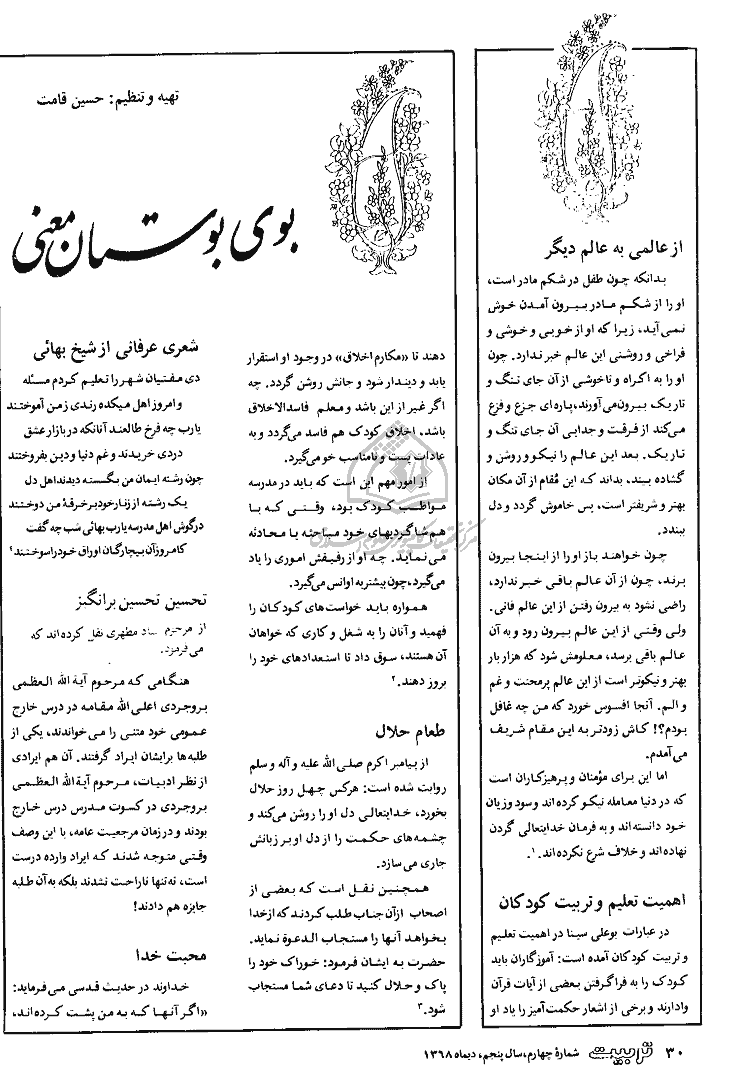 تهیه و تنظیم: حسین قامت
بوی بوستان معنی
از عالمی به عالم دیگر
بدانکه چون طفل در شکم مادر است،
او را از شکم مادر بیرون آمدن خوش
نمی‌آید، زیرا که او از خوبی و خوشی و
فراخی و روشنی این عالم خبر ندارد. چون
او را به اکراه و ناخوشی از آن جای تنگ و
تاریک بیرون می‌آورند، پاره‌ای جزع و فزع
می‌کند از فرقت و جدایی آن جای تنگ و
تاریک. بعد این عالم را نیکو و روشن و
گشاده بیند، بداند که این مُقام از آن مکان
بهتر و شریفتر است، پس خاموش گردد و دل
ببندد.
چون خواهند باز او را از اینجا بیرون
برند، چون از آن عالم باقی خبر ندارد،
راضی نشود به بیرون رفتن از این عالم فانی.
ولی وقتی از این عالم بیرون رود و به آن
عالم باقی برسد، معلومش شود که هزار بار
بهتر و نیکوتر است از این عالم پرمحنت و غم
و الم. آنجا افسوس خورد که من چه غافل
بودم؟! کاش زودتر به این مقام شریف
می‌آمدم.
اما این برای مؤمنان و پرهیزکاران است
که در دنیا معامله نیکو کرده‌اند و سود و زیان
خود دانسته‌اند و به فرمان خدایتعالی گردن
نهاده‌اند و خلاف شرع نکرده‌اند.۱
اهمیت تعلیم و تربیت کودکان
در عبارات بوعلی سینا در اهمیت تعلیم
و تربیت کودکان آمده است: آموزگاران باید
کودک را به فراگرفتن بعضی از آیات قرآن
وادارند و برخی از اشعار حکمت‌آمیز را یاد او
دهند تا «مکارم اخلاق» در وجود او استقرار
یابد و دیندار شود و جانش روشن گردد. چه
اگر غیر از این باشد و معلم فاسدالاخلاق
باشد. اخلاق کودک هم فاسد می‌گردد و به
عادات پست و نامناسب خو می‌گیرد.
از امور مهم این است که باید در مدرسه
مواظب کودک بود، وقتی که با
هم‌شاگردیهای خود مباحثه یا محادثه
می‌نماید. چه او از رفیقش اموری را یاد
می‌گیرد، چون بیشتر به او انس می‌گیرد.
همواره باید خواست‌های کودکان را
فهمید و آنان را به شغل و کاری که خواهان
آن هستند، سوق داد تا استعدادهای خود را
بروز دهند.۲
طعام حلال
از پیامبر اکرم صلی الله علیه و آله و سلم
روایت شده است: هرکس چهل روز حلال
بخورد، خدایتعالی دل او را روشن می‌کند و
چشمه‌های حکمت را از دل او بر زبانش
جاری می‌سازد.
همچنین نقل است که بعضی از
اصحاب از آن جناب طلب کردند که از خدا
بخواهد آنها را مستجاب الدعوة نماید.
حضرت به ایشان فرمود: خوراک خود را
پاک و حلال کنید تا دعای شما مستجاب
شود.۳
شعری عرفانی از شیخ بهائی
دی مفتیان شهر را تعلیم کردم مسئله
و امروز اهل میکده رندی ز من آموختند
یارب چه فرخ طالعند آنانکه در بازار عشق
دردی خریدند و غم دنیا و دین بفروختند
چون رشته ایمان من بگسسته دیدند اهل دل
یک رشته از زنار خود بر خرقهٔ من دوختند
در گوش اهل مدرسه یارب بهائی شب چه گفت
کامروز آن بیچارگان اوراق خود را سوختند۴
تحسین تحسین برانگیز
از مرحوم استاد مطهری نقل کرده‌اند که
می‌فرمود:
هنگامی که مرحوم آیة الله العظمی
بروجردی اعلی الله مقامه در درس خارج
عمومی خود متنی را می‌خواندند، یکی از
طلبه‌ها برایشان ایراد گرفتند. آن هم ایرادی
از نظر ادبیات، مرحوم آیة الله العظمی
بروجردی در کسوت مدرس درس خارج
بودند و در زمان مرجعیت عامه، با این وصف
وقتی متوجه شدند که ایراد وارده درست
است، نه‌تنها ناراحت نشدند بلکه به آن طلبه
جایزه هم دادند!
محبت خدا
خداوند در حدیث قدسی می‌فرماید:
«اگر آنها که به من پشت کرده‌اند،
۳۰ تربیت شمارهٔ چهارم، سال پنجم، دیماه ۱۳۶۸